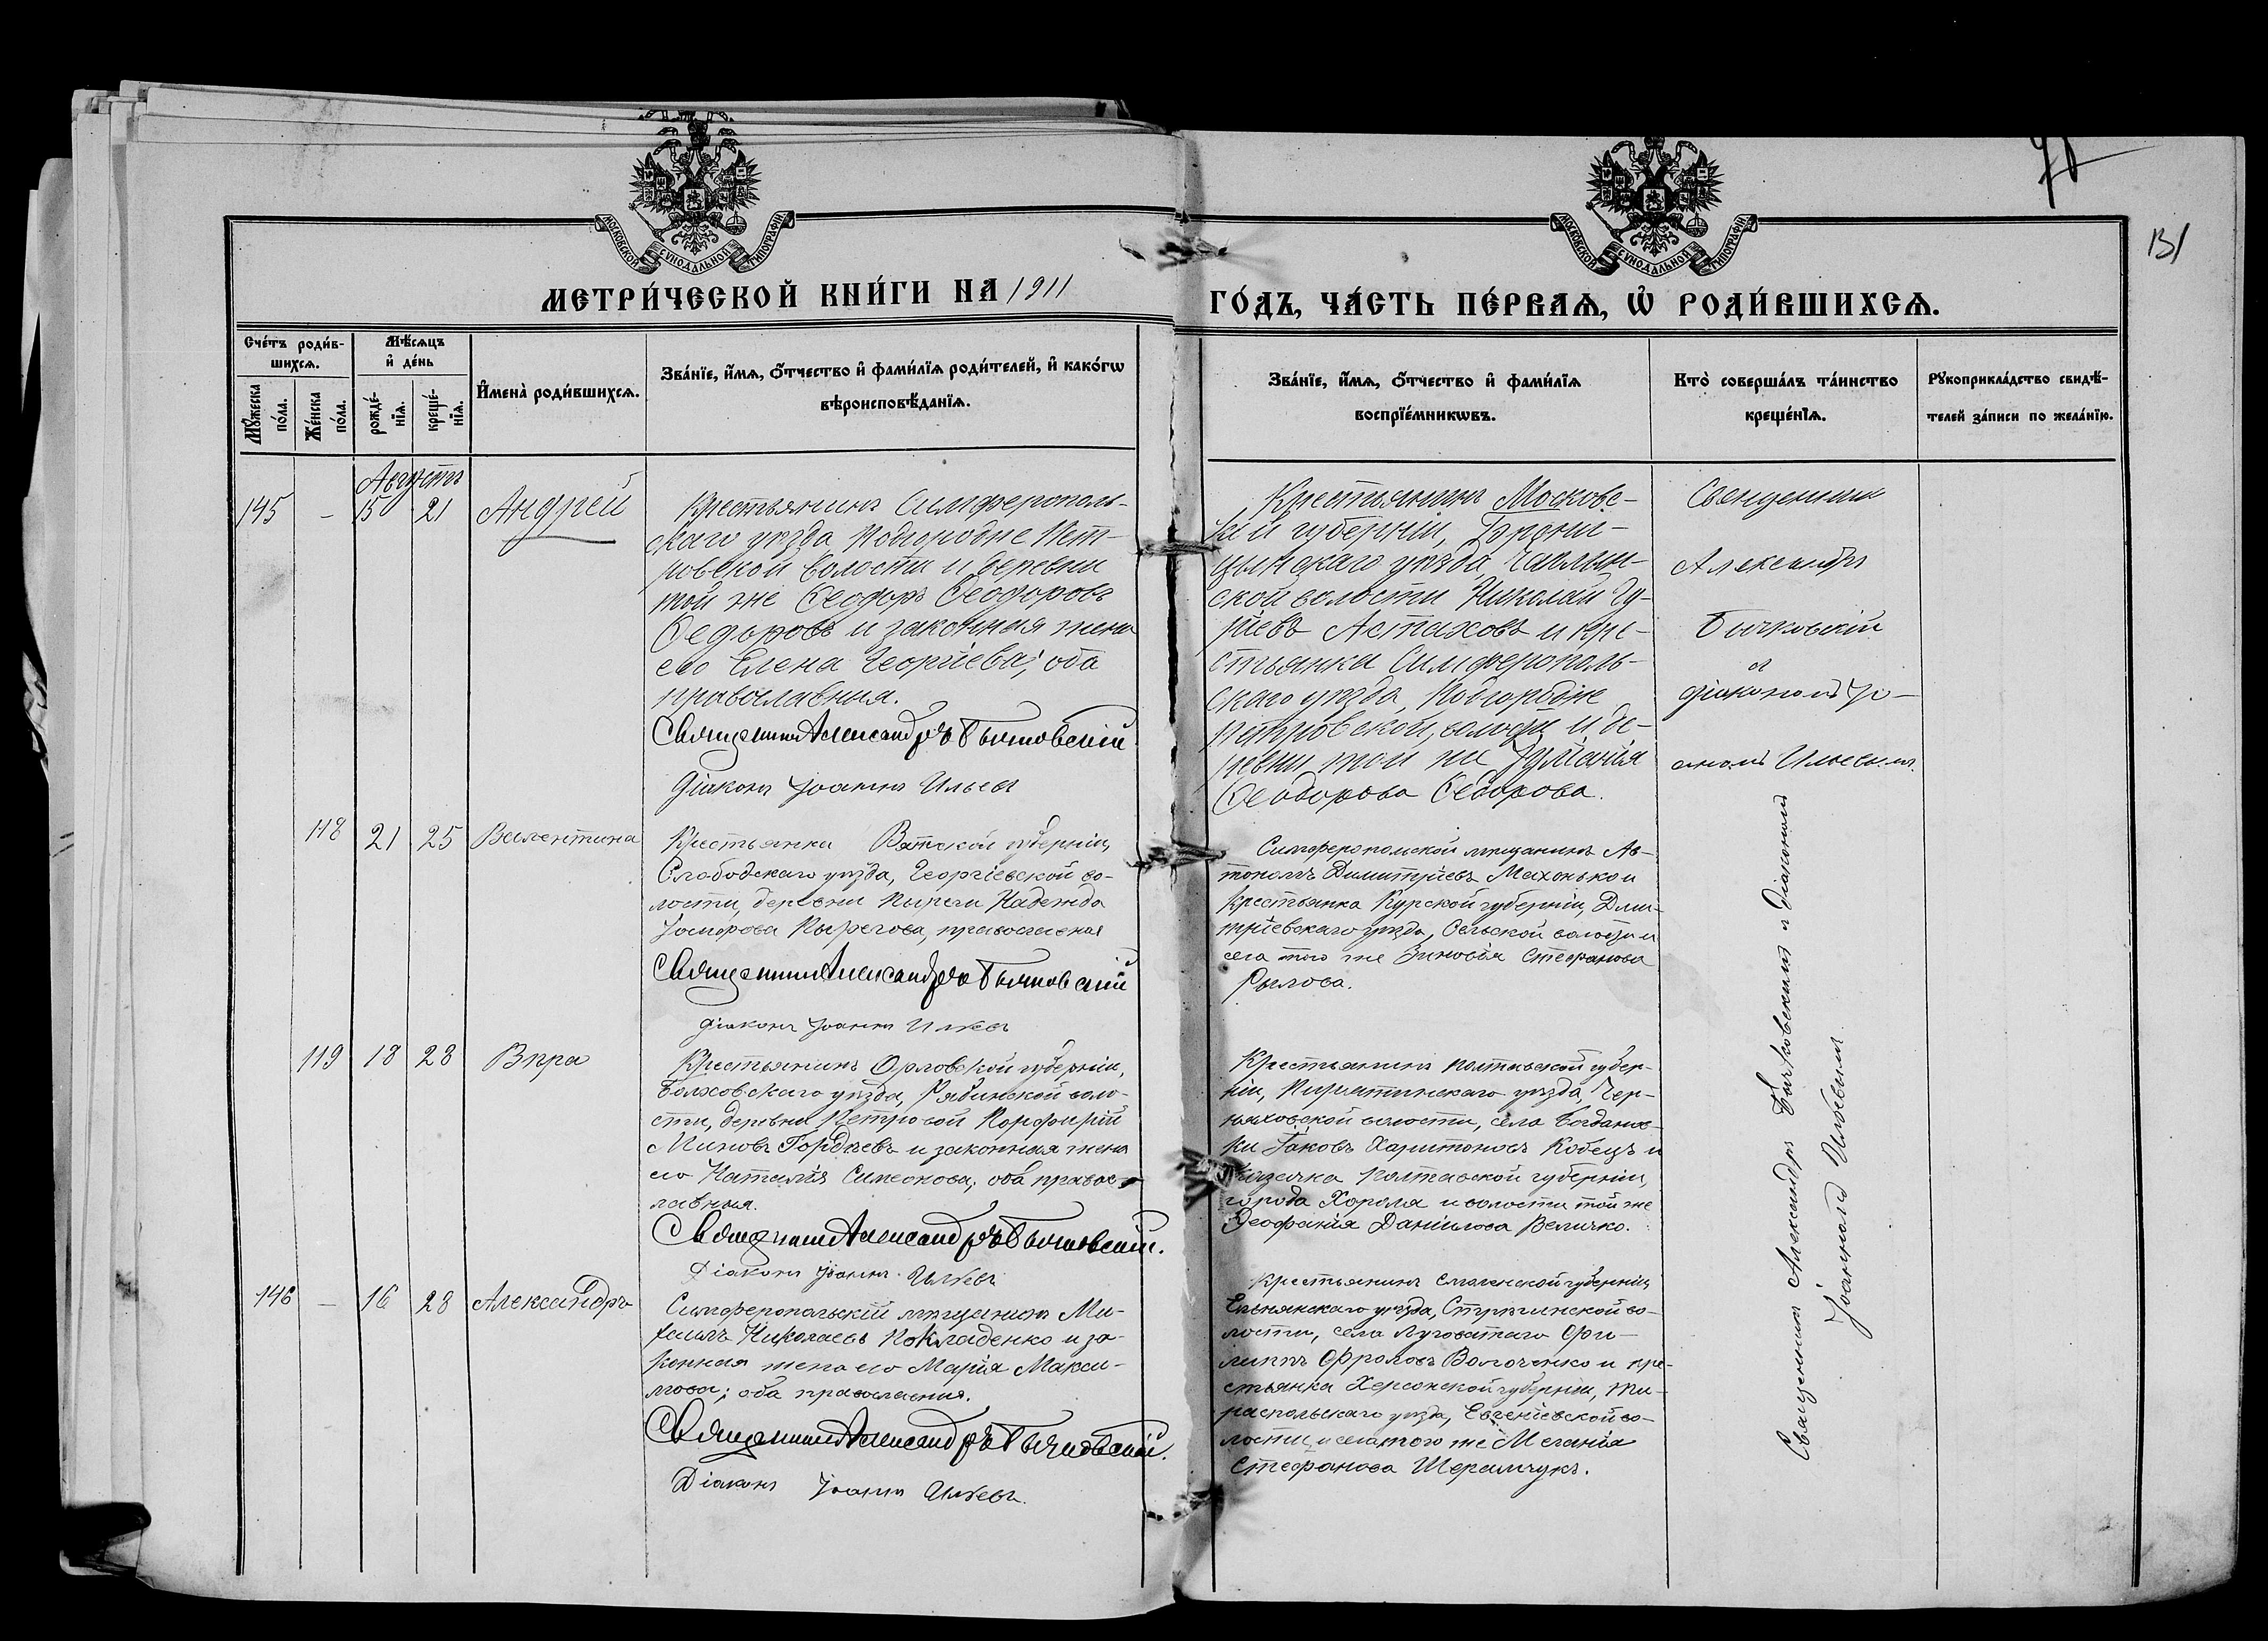 71
131
МОСКОВСКОЙ СУНОДАЛЬНОЙ ТИПОГРАФІИ
МОСКОВСКОЙ СУНОДАЛЬНОЙ ТИПОГРАФІИ
МЕТРИ́ЧЕСКОЙ КНИ́ГИ НА 1911
ГО́ДЪ, ЧА́СТЬ ПЕ́РВАѦ, Ѡ҆ РОДИ́ВШИХСѦ.
Сче́тъ роди́в-
шихсѧ.
Мꙋ́жеска по́ла.
Же́нска по́ла.
Мѣ́сѧцъ
и҆ де́нь
рожде́-
нїѧ.
креще́-
нїѧ.
И҆мена̀ роди́вшихсѧ.
Зва́нїе, и҆́мѧ, ѻ҆́тчество и҆ фами́лїѧ роди́телей, и҆ како́гѡ
вѣроисповѣ́данїѧ.
Зва́нїе, и҆́мѧ, ѻ҆́тчество и҆ фами́лїѧ
воспрїе́мникѡвъ.
Кто̀ соверша́лъ та́инство
креще́нїѧ.
Рꙋкоприкла́дство свидѣ́-
телей за́писи по жела́нїю.
Августъ
145 – 15 21 Андрей
Крестьянинъ Симферополь-
скаго уѣзда Подгородне Пет-
ровской волости и деревни
той же Ѳеодоръ Ѳеодоровъ
Ѳедоровъ и законная жена
его Елена Георгіева; оба
православныя.
Священникъ Александръ Бычковскій
Діаконъ Іоаннъ Ильевъ
Крестьянинъ Московс-
кой губерніи, Брони-
цынскаго уѣзда, Чаплин-
ской волости Николай Гу-
ріевъ Астаховъ и кре-
стьянка Симферополь-
скаго уѣзда, Подгородне
Петровской, волости и де-
ревни той же Іуліанія
Ѳеодорова Ѳедорова.
Священникъ
Александръ
Бычковскій
съ
діакономъ Іо-
анномъ Ильевымъ.
118 21 25 Валентина
Крестьянка Вятской губерніи,
Слободскаго уѣзда, Георгіевской во-
лости, деревни Пыреги Надежда
Пырегова, православная
Священникъ Александръ Бычковскій
діаконъ Іоаннъ Ильевъ
Симферопольской мѣщанинъ Ав-
тономъ Димитріевъ Махонько и
крестьянка Курской губерніи, Дми-
тріевскаго уѣзда, Сельской волости и
села того же Зиновія Стефанова
Рылова.
119 18 28 Вѣра
Крестьянинъ Орловской губерніи,
Болховскаго уѣзда, Рябинской воло-
сти, деревни Петровой Порфирій
Миновъ Гордѣевъ и законная жена
его Наталія Симеонова; оба правос-
лавныя.
Священникъ Александръ Бычковскій.
Діаконъ Іоаннъ Ильевъ
Крестьянинъ Полтавской губер-
ніи, Пирятинскаго уѣзда, Чер-
няховской волости, села Богданов-
ки Іаковъ Харитоновъ Кобецъ и
казачка Полтавской губерніи,
города Хорола и волости той же
Ѳеофанія Даніилова Величко.
146 – 16 28 Александръ
Симферопольскій мѣщанинъ Ми-
хаилъ Николаевъ Покладенко и за-
конная жена его Марія Макси-
мова; оба православныя.
Священникъ Александръ Бычковскій.
Діаконъ Іоаннъ Ильевъ.
Крестьянинъ Смоленской губерніи,
Ельнянскаго уѣзда, Стригинской во-
лости, села Луговатаго Фи-
липпъ Фроловъ Волоченко и кре-
стьянка Херсонской губерніи, Ти-
распольскаго уѣзда, Евгеніевской во-
лости и села того же Меланія
Стефанова Шерамчукъ.
Священникъ Александръ Бычковскій и Діаконъ
Іоаннъ Ильевымъ